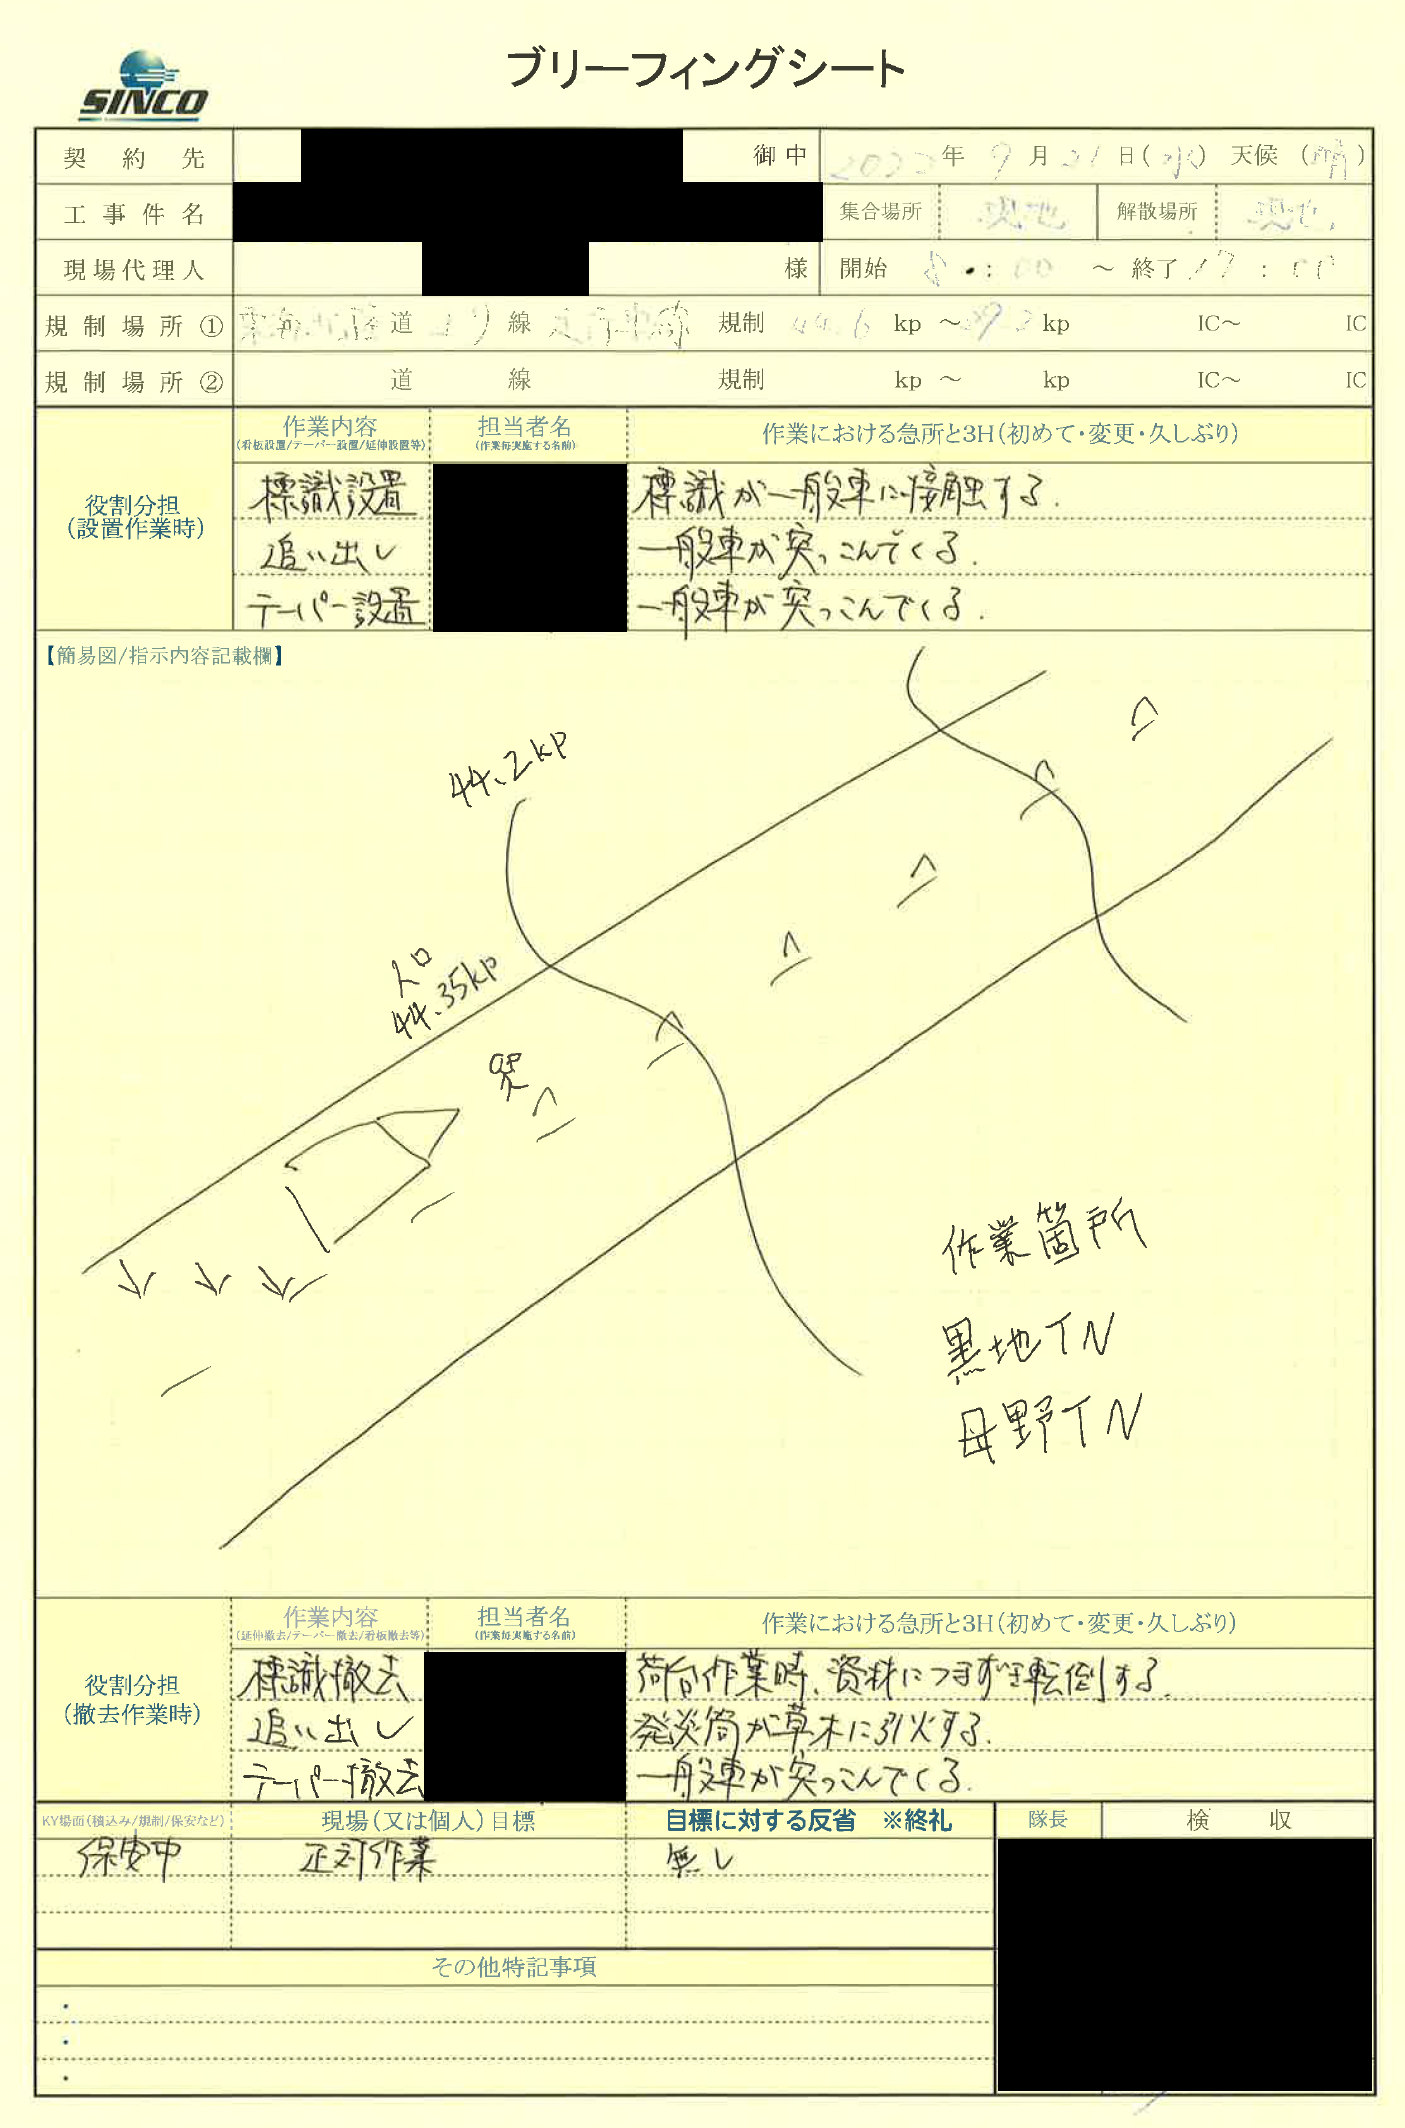 SINCO
ブリーフィングシート
契約先 御中 2022年9月21日(水) 天候(晴)
工事件名 集合場所 現地 解散場所 現地
現場代理人 様 開始 8:00 ～終了 17:00
規制場所① 道 線 規制 44.6 kp ～ kp IC～ IC
規制場所② 道 線 規制 kp ～ kp IC～ IC
役割分担(設置作業時)
作業内容 担当者名 作業における急所と3H(初めて・変更・久しぶり)
(看板設置/テーパー設置/延伸設置等) (作業毎実施する名前)
標識設置 標識が一般車に接触する.
追い出し 一般車が突っこんでくる
テーパー設置 一般車が突っこんでくる.
【簡易図/指示内容記載欄】
44.2kp
入口
44.35kp
作業箇所
黒地TN
母野TN
役割分担(撤去作業時)
作業内容 担当者名 作業における急所と3H(初めて・変更・久しぶり)
(延伸撤去/テーパー撤去/看板撤去等) (作業毎実施する名前)
標識撤去 荷台作業時、資材につまずき転倒する.
追い出し 発炎筒が草木に引火する.
テーパー撤去 一般車が突っこんでくる.
KY場面(積込み/規制/保安など) 現場(又は個人)目標 目標に対する反省 ※終礼 隊長 検収
保安中 正対作業 無し
その他特記事項
・
・
・